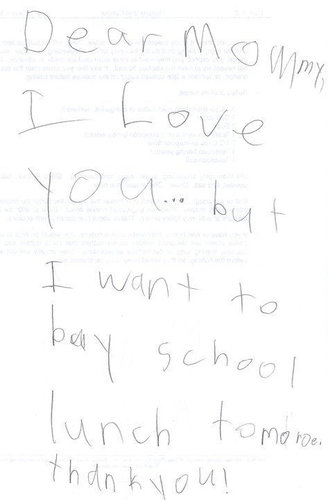 Dear Mommy,
I Love
you... but
I want to
buy school
lunch tomoroe.
thankyou!